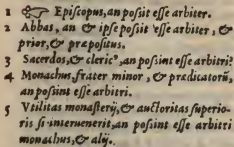 1 ☞ Episcopus, an possit esse arbiter.
2 Abbas, an & ipse possit esse arbiter, &
prior, & præpositus.
3 Sacerdos, & cleric', an possint esse arbitri?
4 Monachus, frater minor, & prædicatorũ,
an possint esse arbitri.
5 Vtilitas monasterij, & auctoritas superio-
ris si interuenerit, an possint esse arbitri
monachus, & alij.